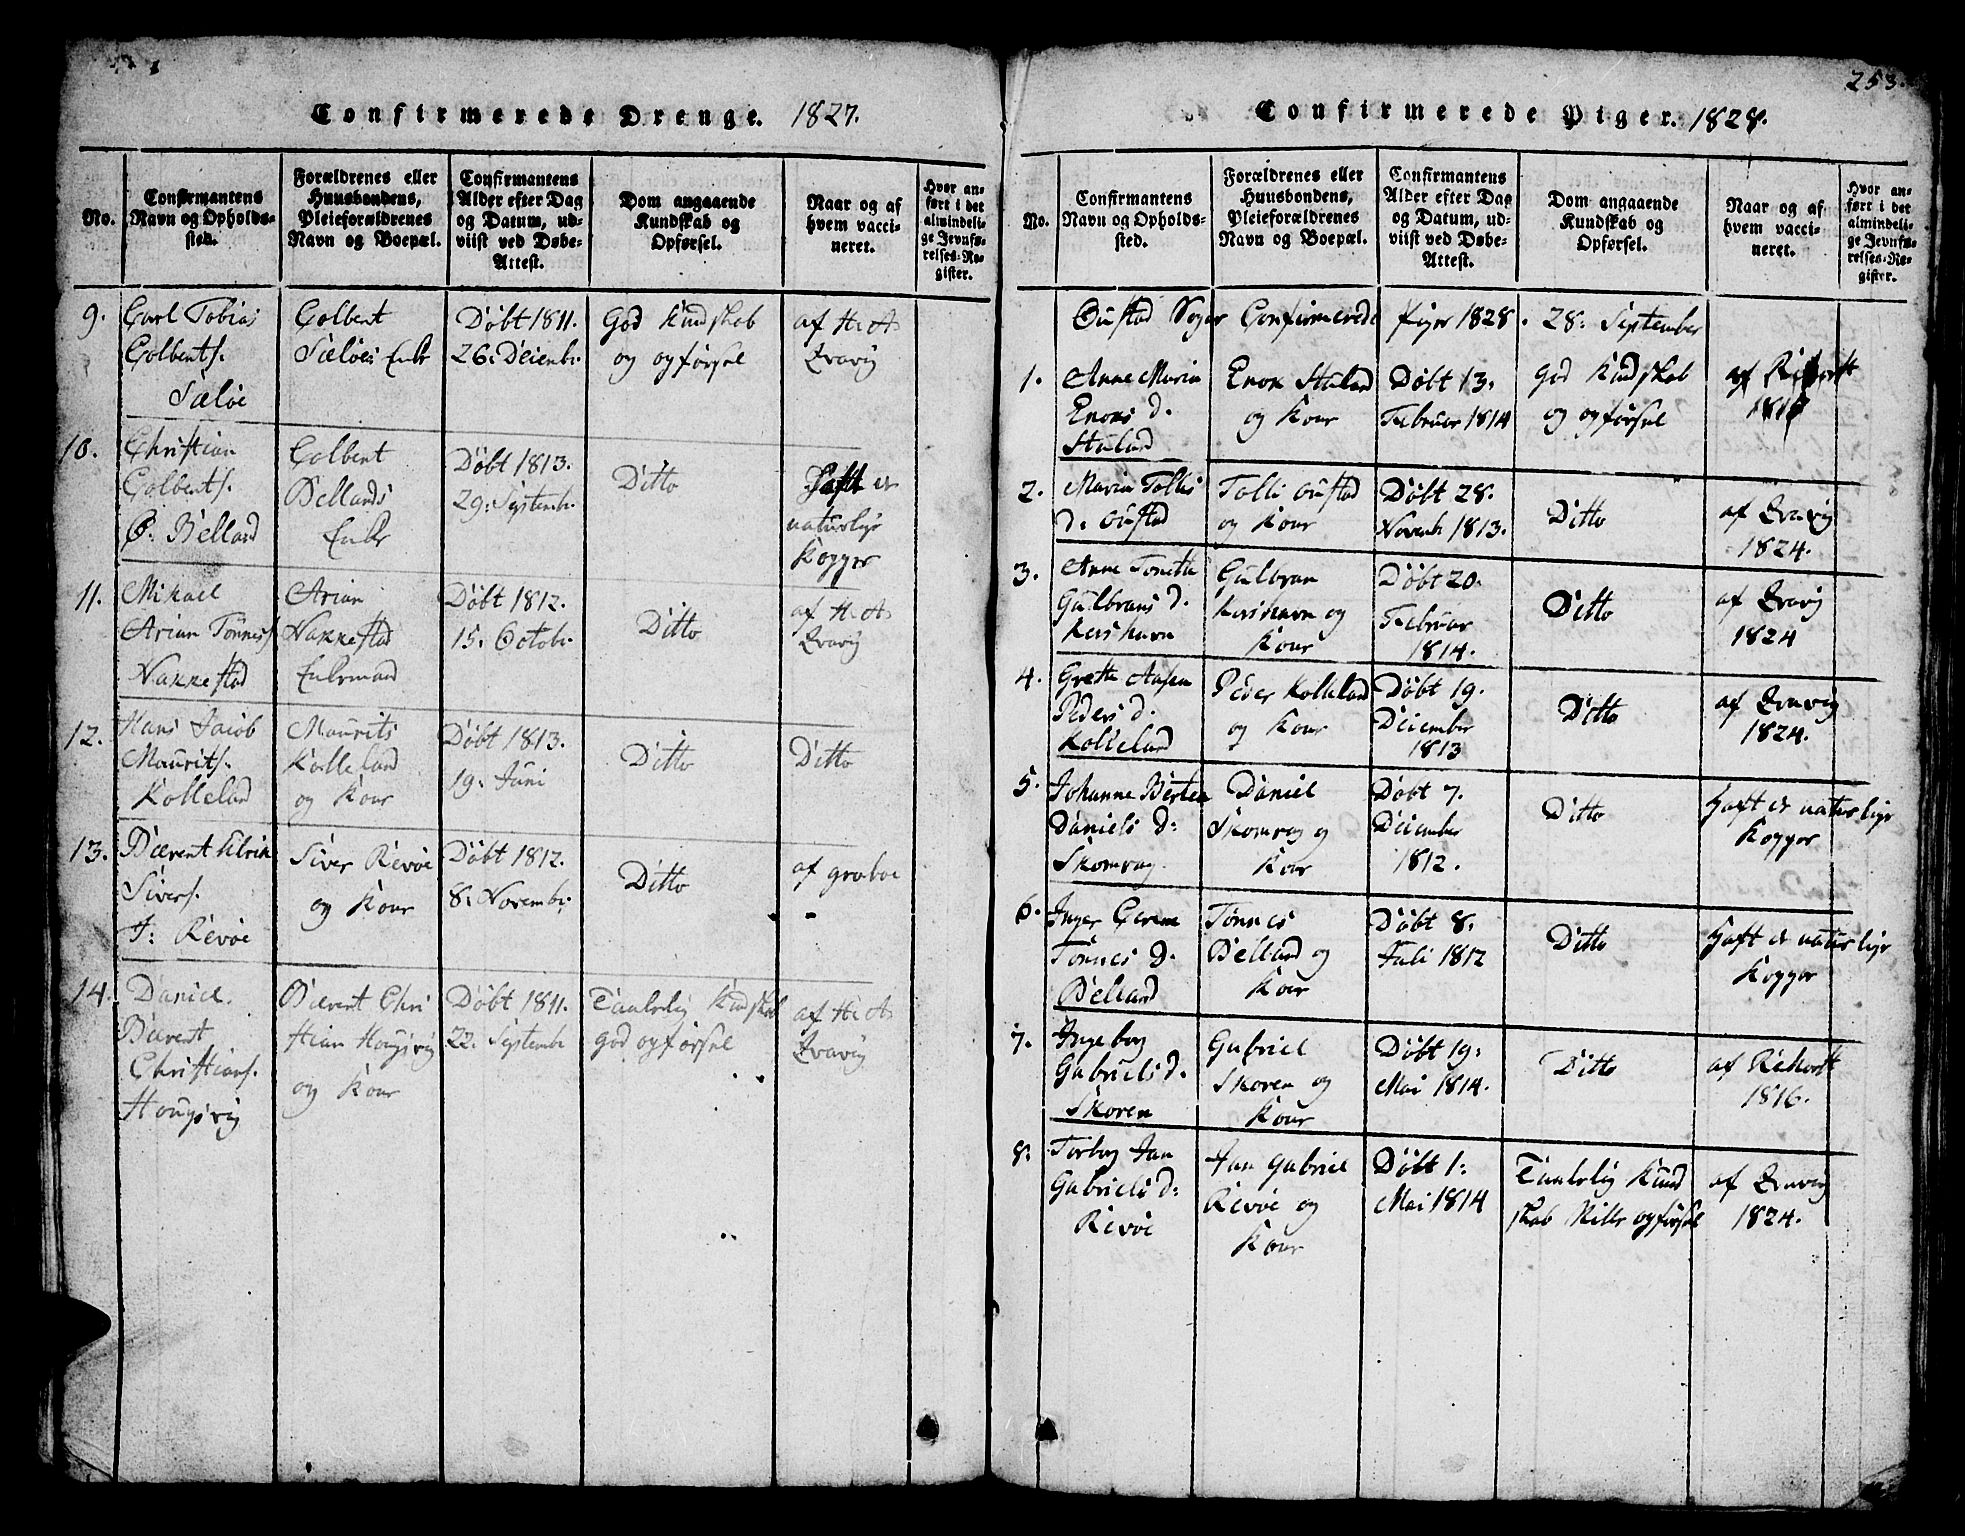 Confirmerede Drenge. 1827.
No.
Confirmantens
Navn og Opholds-
sted.
Forældrenes eller
Huusbondens,
Pleieforældrenes
Navn og Boepæl.
Confirmantens
Alder efter Dag
og Datum, ud-
viist ved Døbe-
Attest.
Dom angaaende
Kundskab og
Opførsel.
Naar og af
hvem vacci-
neret.
Hvor an-
ført i det
almindeli-
ge Jevnfø-
relses-Re-
gister.
9.
Carl Tobias
Colbents.
Sæløe
Colbent
Sæløes Enke
Døbt 1811.
26. Decembr.
God Kundskab
og opførsel
af H. A.
Qvavig
10.
Christian
Colbents.
Ø. Belland
Colbent
Bellands
Enke
Døbt 1813.
29. Septembr.
Ditto
Haft de
naturlige
Kopper
11.
Mikael
Arian Tønness.
Nakkestad
Arian
Nakkestad
Enkemand
Døbt 1812.
15. Octobr.
Ditto
af H. A.
Qvavig
12.
Hans Jacob
Maurits.
Kolleland
Maurits
Kolleland
og Kone
Døbt 1813.
19. Juni
Ditto
Ditto
13.
Bærent Ulrik
Sivers.
I. Revøe
Siver Revøe
og Kone
Døbt 1812.
8. Novembr.
Ditto
af Graboe
14.
Daniel
Bærent
Christians.
Hougsvig
Bærent Chri
stian Hougsvig
og Kone
Døbt 1811.
22. Septembr
Taalelig Kundskab
god opførsel
af H. A.
Qvavig
253.
Confirmerede Piger. 1828.
No.
Confirmantens
Navn og Opholds-
sted.
Forældrenes eller
Huusbondens,
Pleieforældrenes
Navn og Boepæl.
Confirmantens
Alder efter Dag
og Datum, ud-
viist ved Døbe-
Attest.
Dom angaaende
Kundskab og
Opførsel.
Naar og af
hvem vacci-
neret.
Hvor an-
ført i det
almindeli-
ge Jevnfø-
relses-Re-
gister.
Oustad Sogns Confirmerede piger 1828. 28. September
1.
Anne Maria
Enoks d.
Staland
Enok Staland
og Kone
Døbt 13.
Februar 1814
God Kundskab
og opførsel
af
2.
Maria Tollis
d. Oustad
Tolli Oustad
og Kone
Døbt 28.
Novembr 1813.
Ditto
af Qvavig
1824.
3.
Anne Tonette
Gulbrans d.
Kershavn
Gulbran
Kershavn og
Kone
Døbt 20.
Februar
1814.
Ditto
af Qvavig
1824
4.
Grethe Aasen
Peders d.
Kolleland
Peder Kolleland
og Kone
Døbt 19.
December
1813
Ditto
af Qvavig
1824.
5.
Johanne Bertea
Daniels d:
Skomrag
Daniel
Skomrag og
Kone
Døbt 7.
December
1812.
Ditto
Haft de naturlige
Kopper
6.
Inger Serine
Tønnes d.
Belland
Tønnes
Belland og
Kone
Døbt 8.
Juli 1812
Ditto
Haft de naturlige
Kopper
7.
Ingeborg
Gabriels d.
Skoren
Gabriel
Skoren og
Kone
Døbt 19.
Mai 1814.
Ditto
af Rickort
1816.
8.
Torborg Jan
Gabriels d:
Revøe
Jan Gabriel
Revøe og
Kone
Døbt 1.
Mai 1814
Taalelig Kund
skab Stille opførsel
af Qvavig
1824.